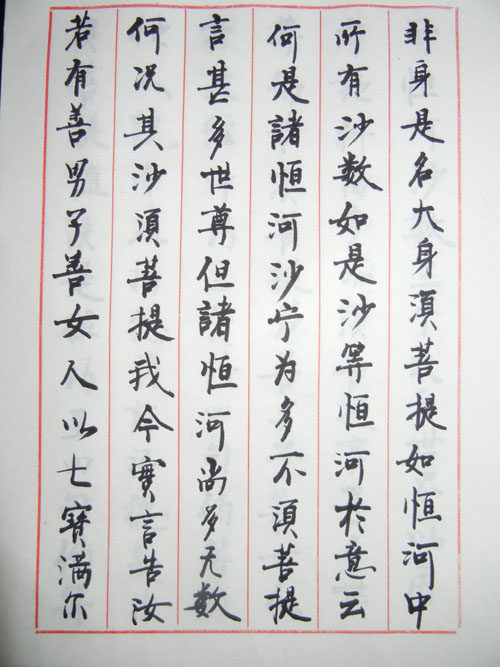 非身是名大身須菩提如恒河中
所有沙数如是沙等恒河於意云
何是諸恒河沙宁为多不須菩提
言甚多世尊但諸恒河尚多无数
何况其沙須菩提我今實言告汝
若有善男子善女人以七寶满尔